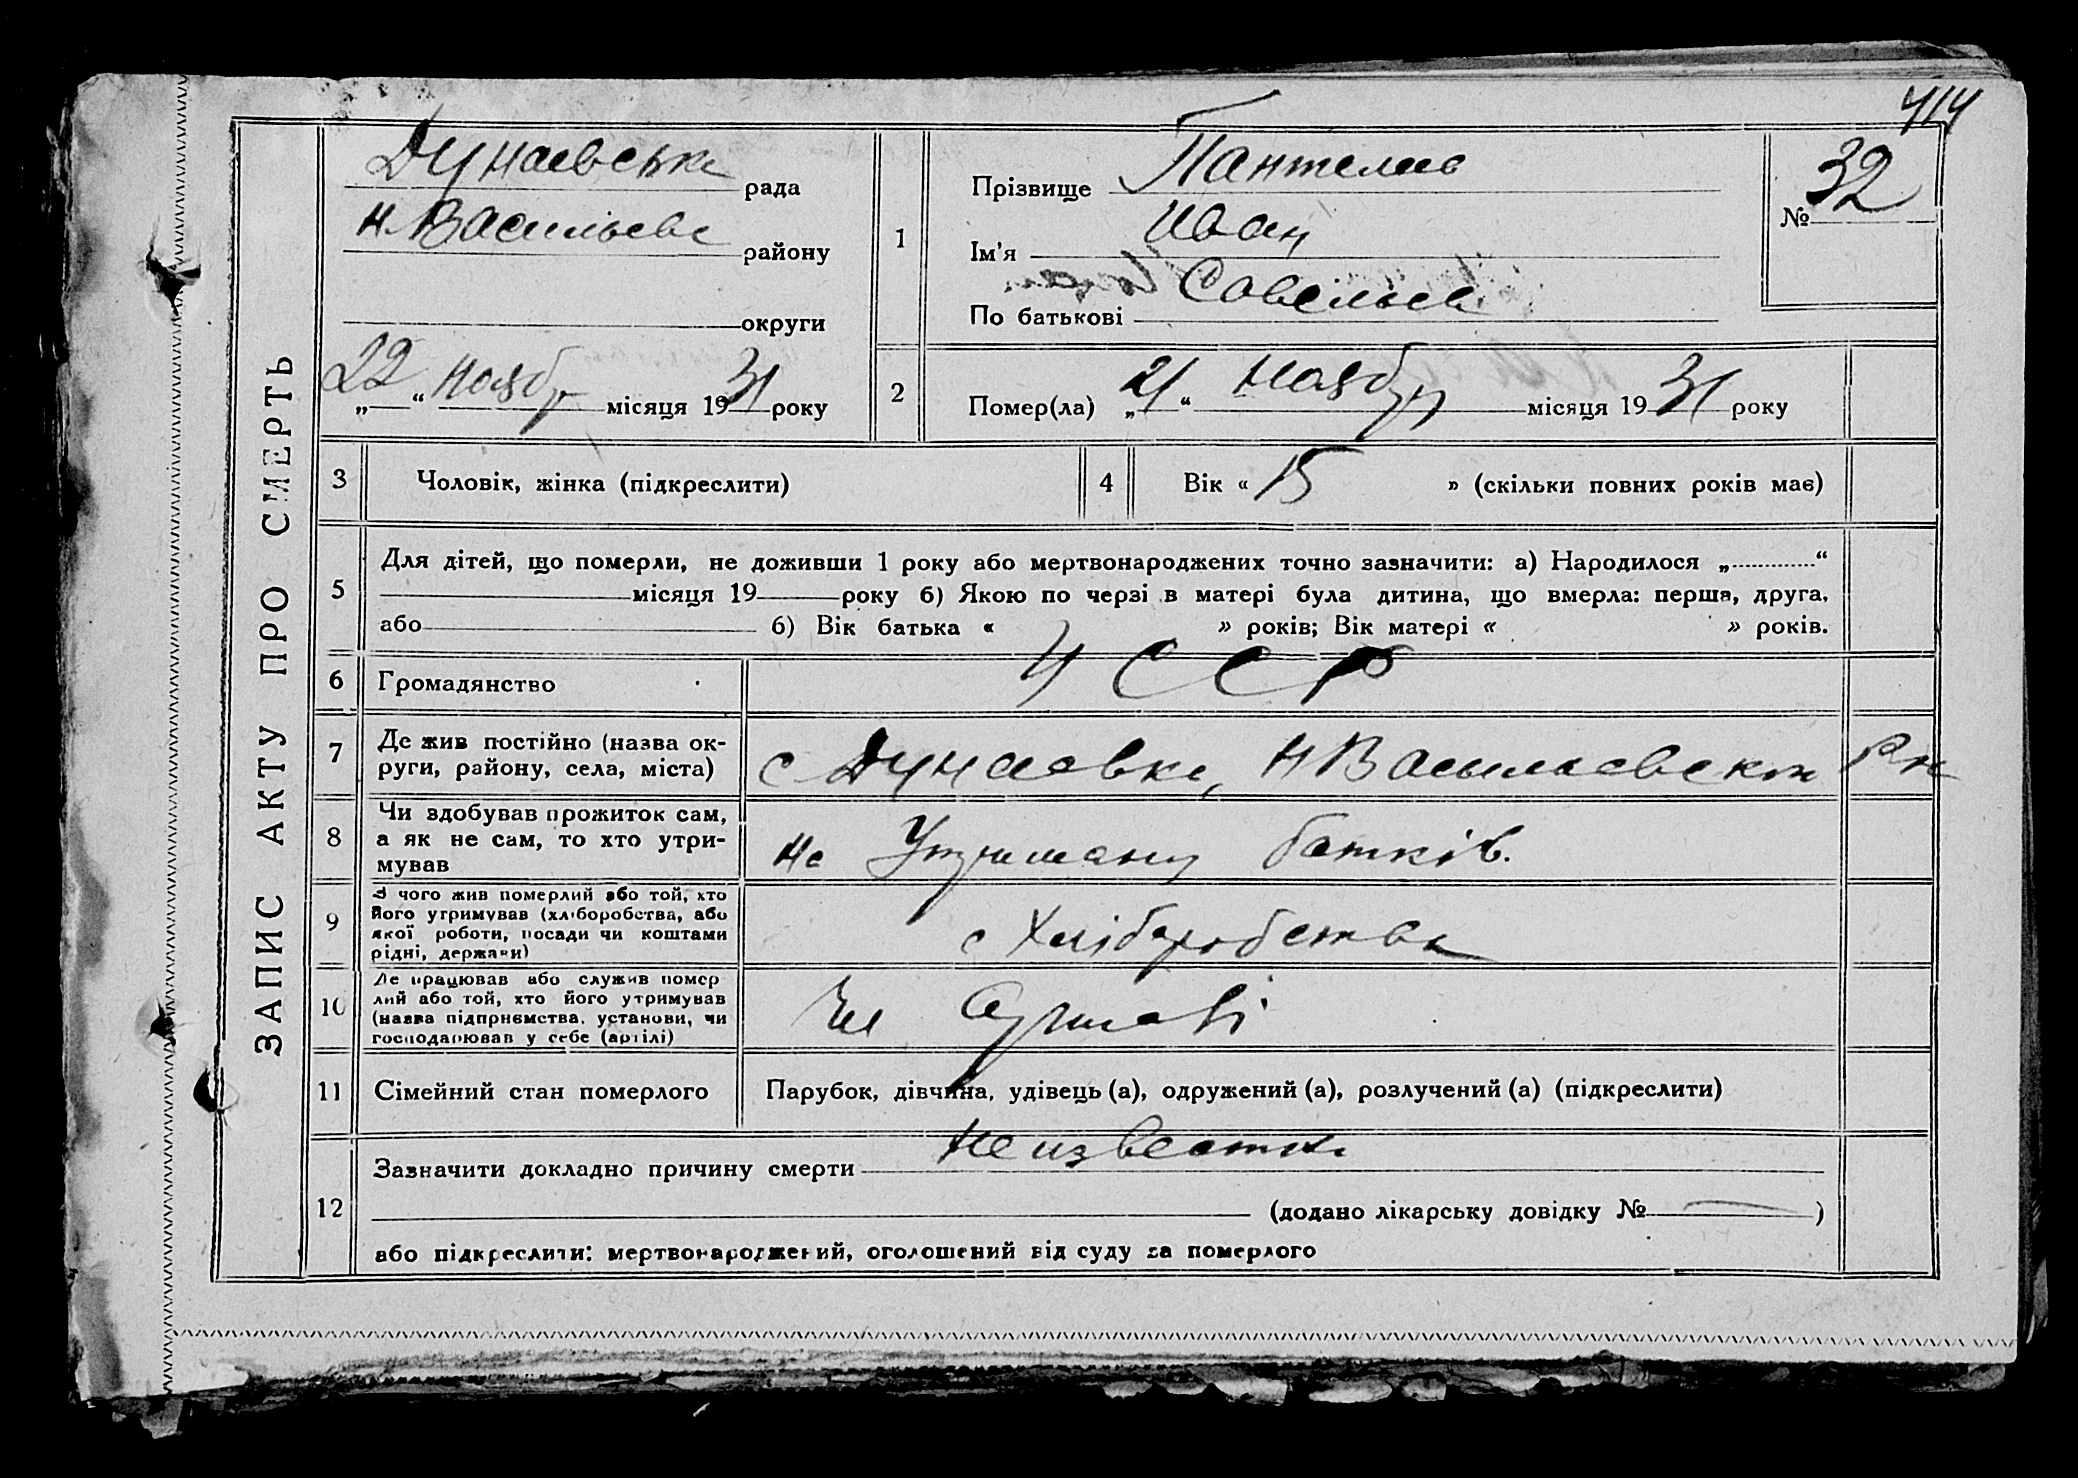 414
ЗАПИС АКТУ ПРО СМЕРТЬ
Дунаевська рада
Н.Васильевс району
округи
„22“ Ноябр місяця 1931 року
1
Прізвище Пантелеев
Ім'я Иван
По батькові Савельев
№ 32
2
Помер(ла) „21“ Ноября місяця 1931 року
3
Чоловік, жінка (підкреслити)
4
Вік « 15 » (скільки повних років має)
5
Для дітей, що померли, не доживши 1 року або мертвонароджених точно зазначити: а) Народилося „ “
місяця 19 року б) Якою по черзі в матері була дитина, що вмерла: перша, друга,
або б) Вік батька « » років; Вік матері « » років.
6
Громадянство
УССР
7
Де жив постійно (назва ок-
руги, району, села, міста)
с Дунаевка, НВасильевском Рн
8
Чи здобував прожиток сам,
а як не сам, то хто утри-
мував
на батків.
9
З чого жив померлий або той, хто
його утримував (хліборобства, або
якої роботи, посади чи коштами
рідні, держави)
с Хліборобства
10
Де працював або служив помер
лий або той, хто його утримував
(назва підприємства, установи, чи
господарював у себе (артілі)
11
Сімейний стан померлого
Парубок, дівчина, удівець (а), одружений (а), розлучений (а) (підкреслити)
12
Зазначити докладно причину смерти Неизвестна
(додано лікарську довідку № — )
або підкреслити: мертвонароджений, оголошений від суду за померлого